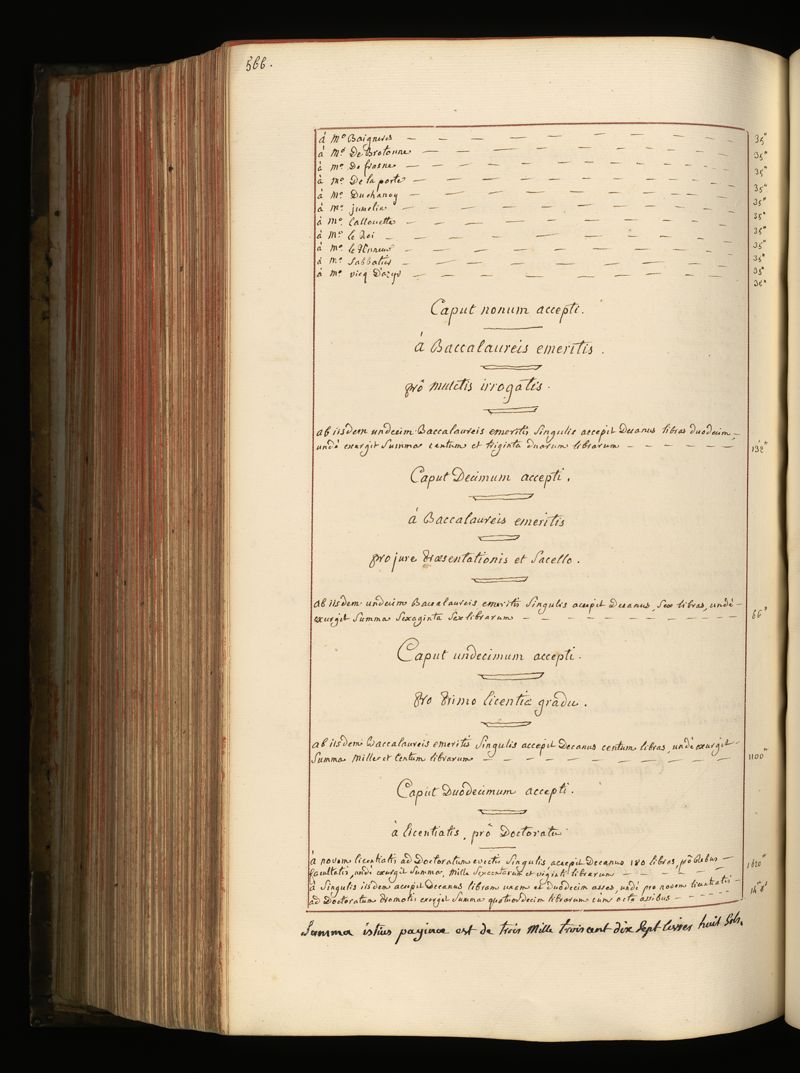 566.
à Mro Baigneres — 35"
à Mro De Brotonne — 35"
à mro De frasne — 35"
à Mro De la porte — 35"
à Mro Duchanoy — 35"
à Mro jumelin — 35"
à Mro Lallouette — 35"
à Mro le Roi — 35"
à Mro le Tenneur — 35"
à Mro Sabbatier — 35"
à Mro vicq D'azyr — 35"
Caput nonum accepti.
à Baccalaureis emeritis.
prô mulctis irrogatis.
ab iisdem undecim Baccalaureis emeritis Singulis accepit Decanus libras duodecim,
undè exurgit Summa centum et triginta duarum librarum — 132"
Caput Decimum accepti.
à Baccalaureis emeritis
pro jure Præsentationis et Sacello.
ab iisdem undecim Baccalaureis emeritis Singulis accepit Decanus, Sex libras, undè
exurgit Summa Sexaginta Sex librarum — 66"
Caput undecimum accepti.
Pro Primo licentiæ gradu.
ab iisdem Baccalaureis emeritis Singulis accepit Decanus centum libras, undè exurgit
Summa Mille et Centum librarum — 1100"
Caput Duodecimum accepti.
à licentiatis, prô Doctoratu
à novem licentiatis ad Doctoratum evectis Singulis accepit Decanus 180 libras, prô rebus
facultatis, undè exurgit Summa, Mille Sexcentarum et viginti librarum — 1620"
à Singulis iisdem accepit Decanus libram unam et duodecim asses, undè pro novem licentiatis
ad Doctoratum Promotis exurgit Summa quatuordecim librarum cum octo assibus — 14" 8s
Summa istius paginæ est de trois Mille trois cent dix Sept livres huit Sols.